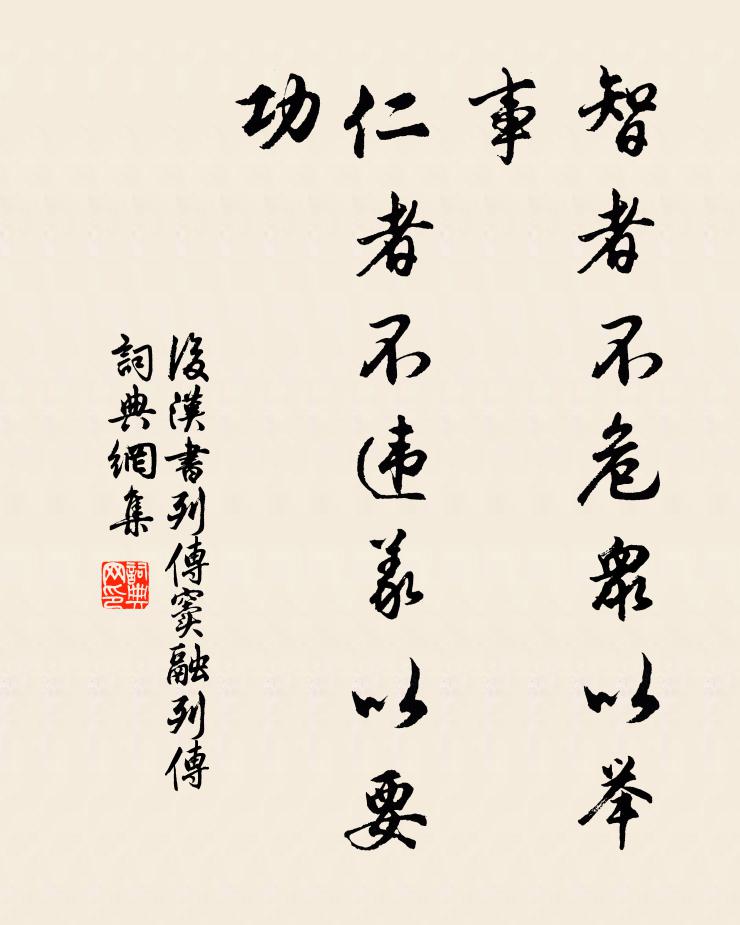 智者不危眾以举
事
仁者不违義以要
功
後漢書列傳竇融列傳
詞典網集
詞典
网印